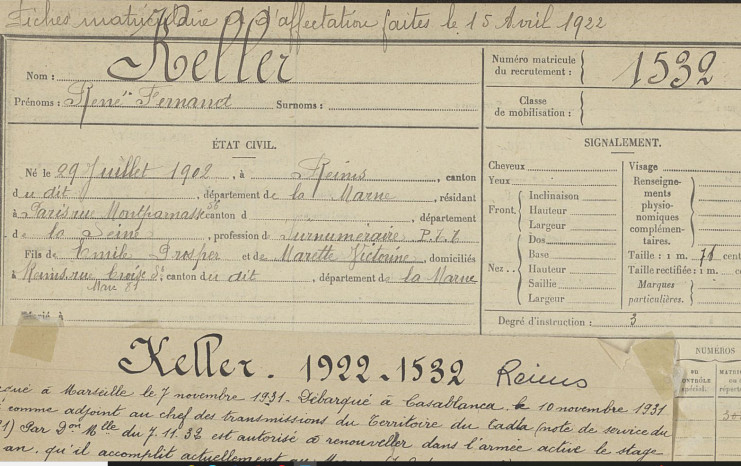 Fiches matriculaire et d'affectation faites le 15 Avril 1922
Nom : Keller
Prénoms : René Fernand Surnoms :
Numéro matricule du recrutement : 1532
Classe de mobilisation :
ÉTAT CIVIL.
Né le 29 Juillet 1902, à Reims, canton
du dit, département de la Marne, résidant
à Paris rue Montparnasse canton d , département
de la Seine, profession de Surnuméraire P.T.T
Fils de Emile Prosper et de Marette Victorine, domiciliés
à Reims, rue Croix St, canton du dit, département de la Marne
Marc 81
Marié à
SIGNALEMENT.
Cheveux
Yeux
Front.
Inclinaison
Hauteur
Largeur
Nez..
Dos
Base
Hauteur
Saillie
Largeur
Visage
Renseigne-
ments
physio-
nomiques
complémen-
taires.
Taille : 1 m. 71 cent
Taille rectifiée : 1 m. c
Marques
particulières.
Degré d'instruction : 3
Keller - 1922 - 1532 Reims
NUMÉROS
AU
CONTRÔLE
spécial.
MATRI
répart
qué à Marseille le 7 novembre 1931 - Débarqué à Casablanca le 10 novembre 1931
comme adjoint au chef des transmissions du Territoire du Tadla (note de service du
1) Par Don Mlle du 7.11.32 est autorisé à renouveller dans l'armée active le stage
an, qu'il accomplit actuellement au